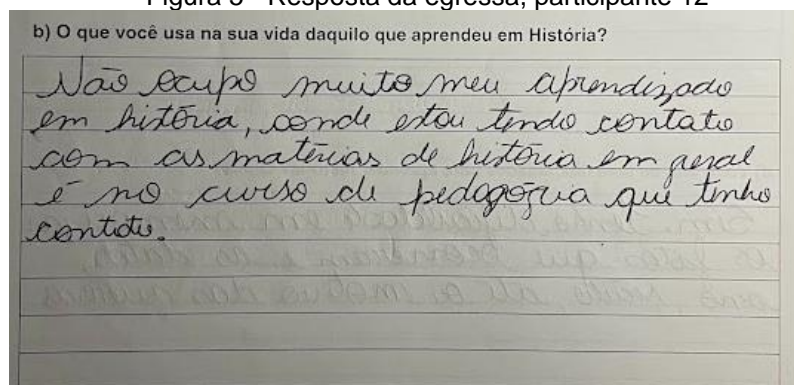 Figura 3 - Resposta da egressa, participante 12
b) O que você usa na sua vida daquilo que aprendeu em História?
Não ocupo muito meu aprendizado
em história, aonde estou tendo contato
com as matérias de história em geral
é no curso de pedagogia que tenho
contato.